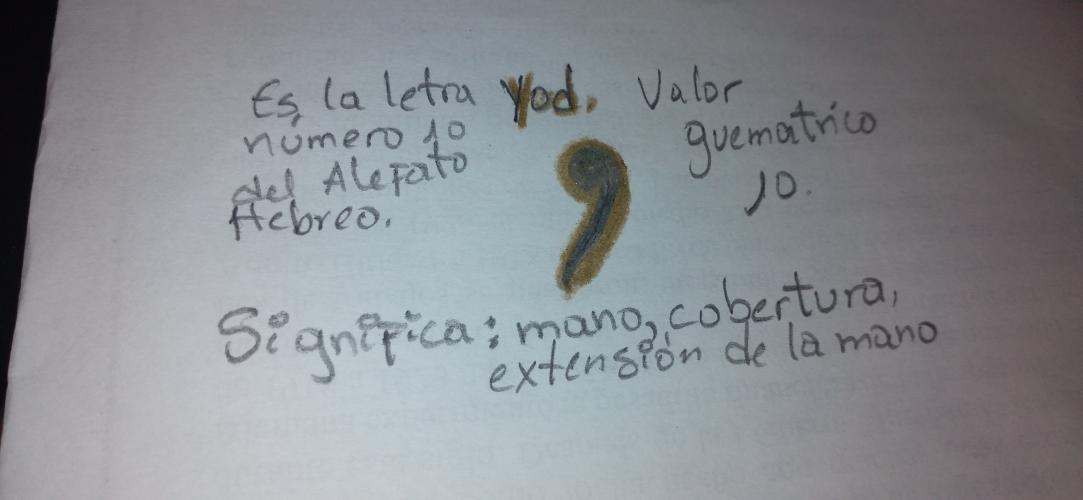 Es la letra Yod. Valor
número 10
guematrico
del Alefato
10.
Hebreo.
Significa: mano, cobertura,
extensión de la mano